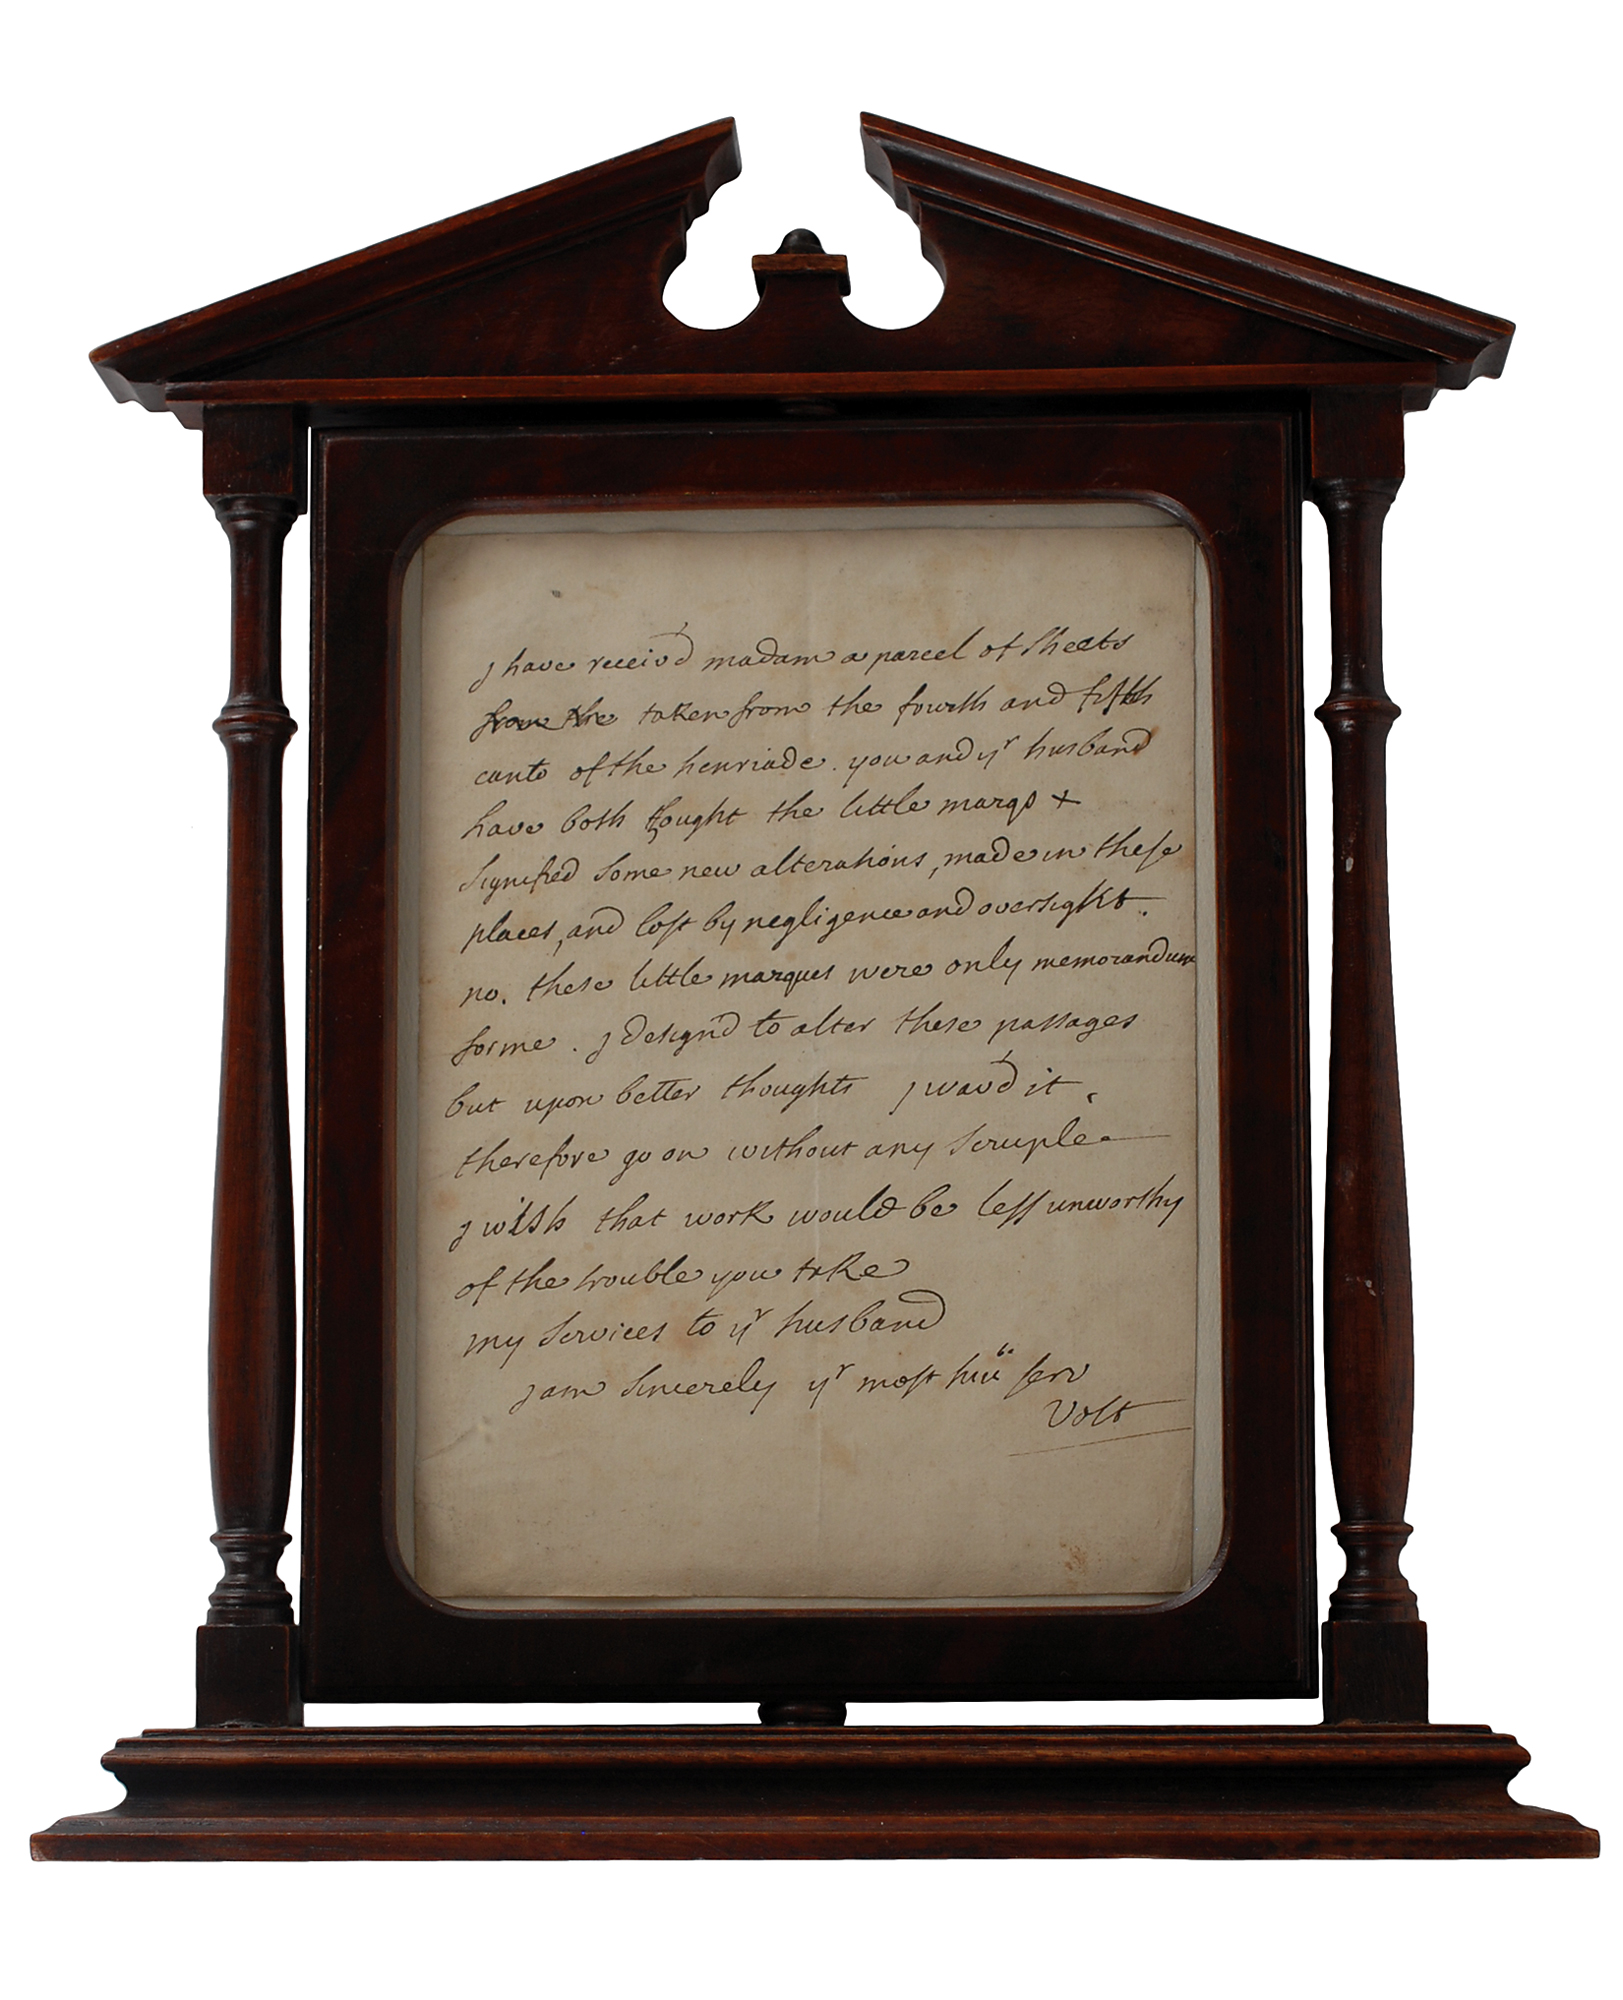 j have receiv'd madam a parcel of sheets
from the taken from the fourth and fifth
canto of the henriade. you and yr husband
have both thought the little marqs +
signified some new alterations, made in these
places, and lost by negligence and oversight.
no. these little marques were only memorandum
for me. j design'd to alter these passages
but upon better thoughts j wav'd it.
therefore go on without any scruple.
j wish that work would be less unworthy
of the trouble you take
my services to yr husband
j am sincerely yr most hu serv
Volt